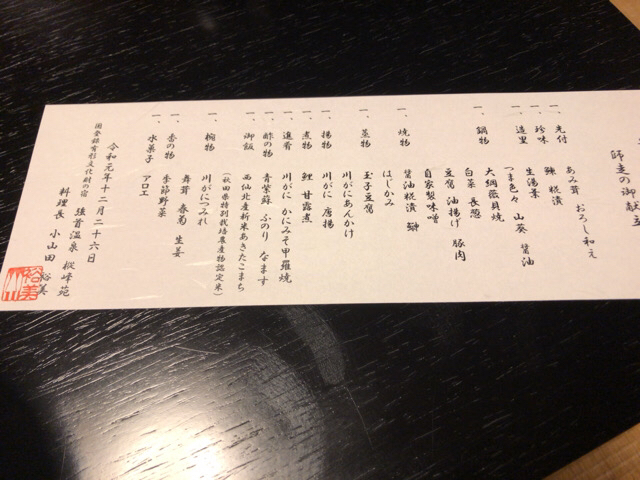 師走の御献立
一、先付
あみ茸 おろし和え
一、珍味
鰊 糀漬
一、造里
生湯葉
つま色々 山葵 醤油
一、鍋物
大綱麓貝焼
白菜 長葱
豆腐 油揚げ 豚肉
自家製味噌
一、焼物
醤油糀漬 鰤
はじかみ
一、蒸物
玉子豆腐
川がにあんかけ
一、揚物
川がに 唐揚
一、煮物
鯉 甘露煮
一、進肴
川がに かにみそ甲羅焼
一、酢の物
青紫蘇 ふのり なます
一、御飯
西仙北産新米あきたこまち
(秋田県特別栽培農産物認定米)
一、椀物
川がにつみれ
舞茸 春菊 生姜
一、香の物
季節野菜
一、水菓子
アロエ
令和元年十二月二十六日
国登録有形文化財の宿 強首温泉 樅峰苑
料理長 小山田 裕美